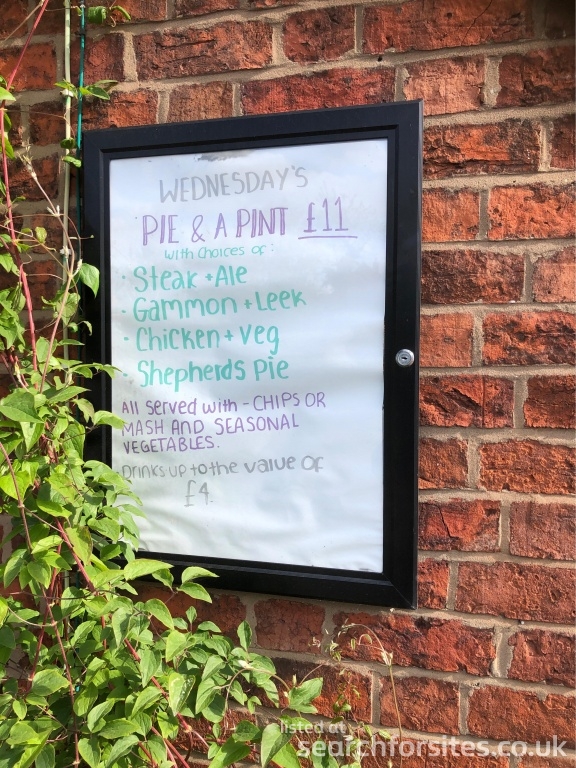 WEDNESDAY'S
PIE & A PINT £11
With Choices of:
· Steak + Ale
· Gammon + Leek
· Chicken + Veg
· Shepherds Pie
All served with - CHIPS OR
MASH AND SEASONAL
VEGETABLES.
Drinks up to the value of
£4.
listed at
searchforsites.co.uk